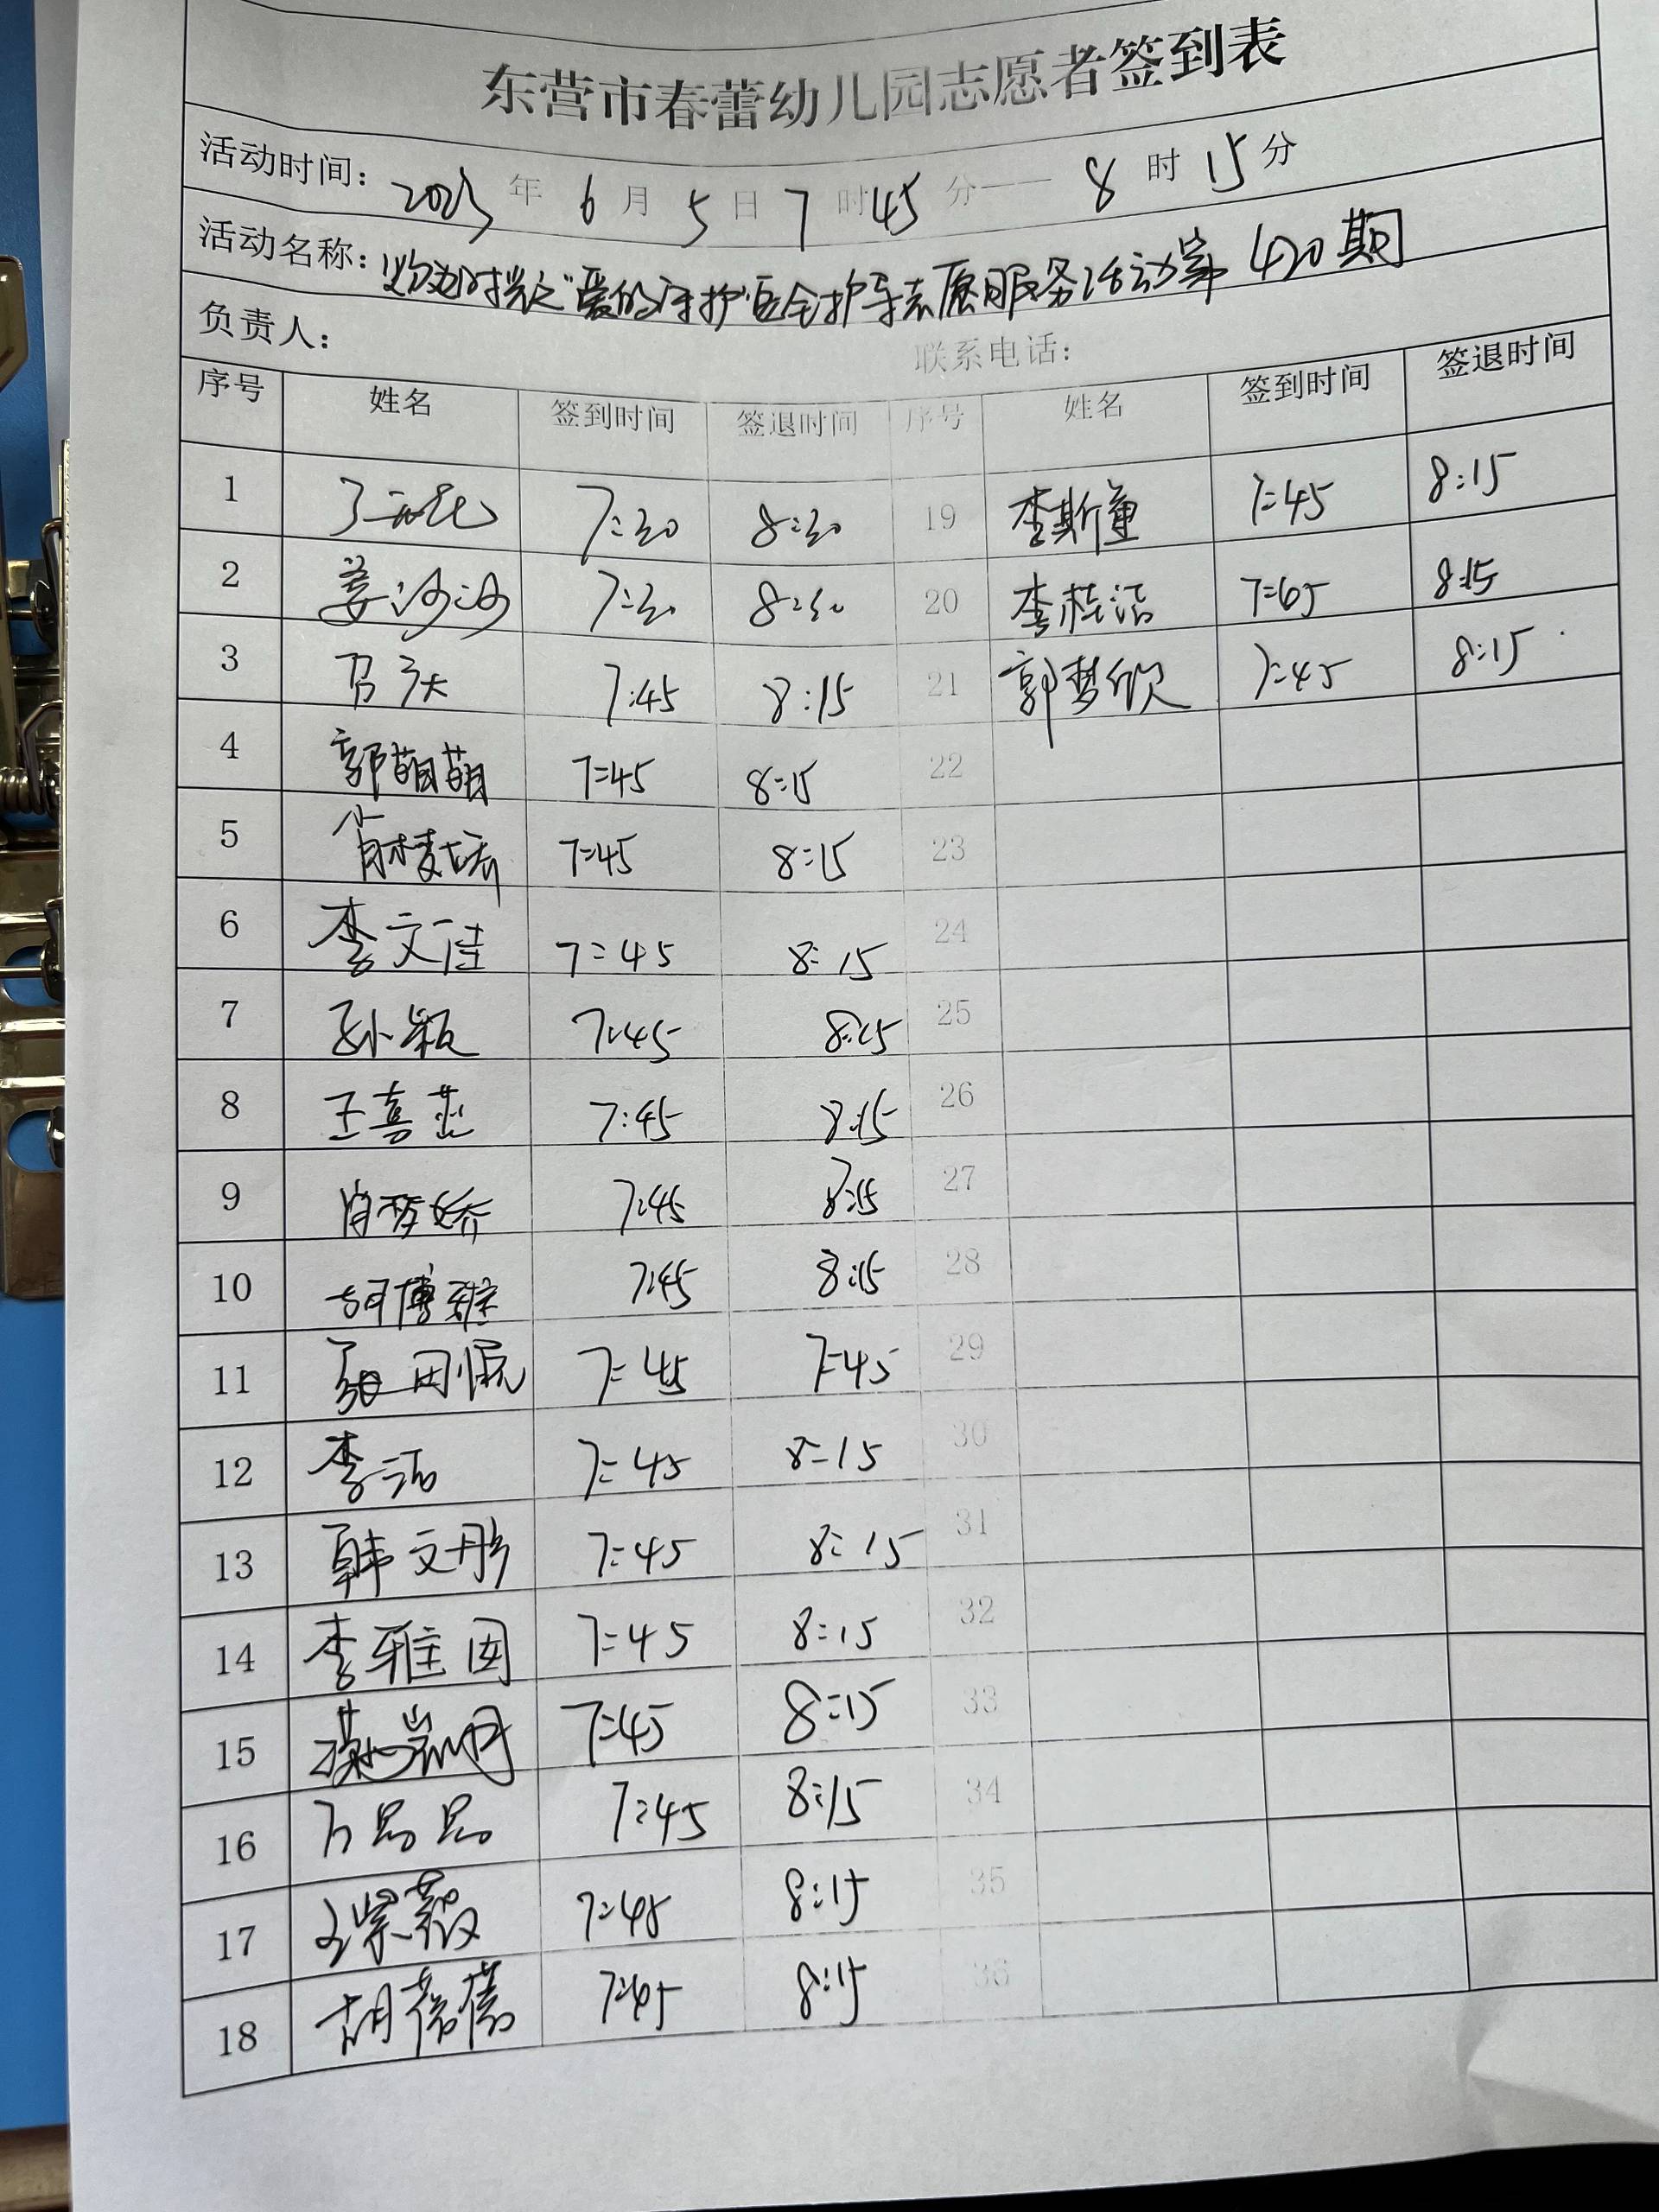 东营市春蕾幼儿园志愿者签到表
活动时间： 2023 年 6 月 5 日 7 时 45 分—— 8 时 15 分
活动名称： “爱的守护”安全护导志愿服务活动第 420 期
负责人： 联系电话：
序号 姓名 签到时间 签退时间 序号 姓名 签到时间 签退时间
1 7:30 8:30 19 李斯 7:45 8:15
2 姜沙沙 7:30 8:30 20 李桂洁 7:45 8:15
3 7:45 8:15 21 郭梦欣 7:45 8:15
4 郭萌萌 7:45 8:15 22
5 肖 7:45 8:15 23
6 李文佳 7:45 8:15 24
7 孙颖 7:45 8:15 25
8 王喜 7:45 8:15 26
9 肖梦娇 7:45 8:15 27
10 胡博雅 7:45 8:15 28
11 7:45 7:45 29
12 李洁 7:45 8:15 30
13 韩文彤 7:45 8:15 31
14 李雅囡 7:45 8:15 32
15 7:45 8:15 33
16 7:45 8:15 34
17 王紫薇 7:45 8:15 35
18 胡蓓蓓 7:45 8:15 36